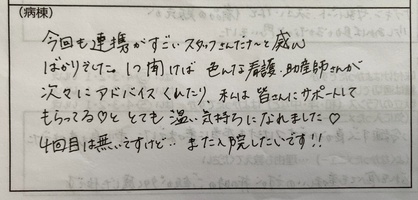 (病棟)
今回も連携がすごいスタッフさんだな〜と感心
ばかりでした。1つ聞けば色んな看護、助産師さんが
次々にアドバイスくれたり、私は皆さんにサポートして
もらってる♡と とても温い気持ちになれました♡
4回目は無いですけど… また入院したいです!!